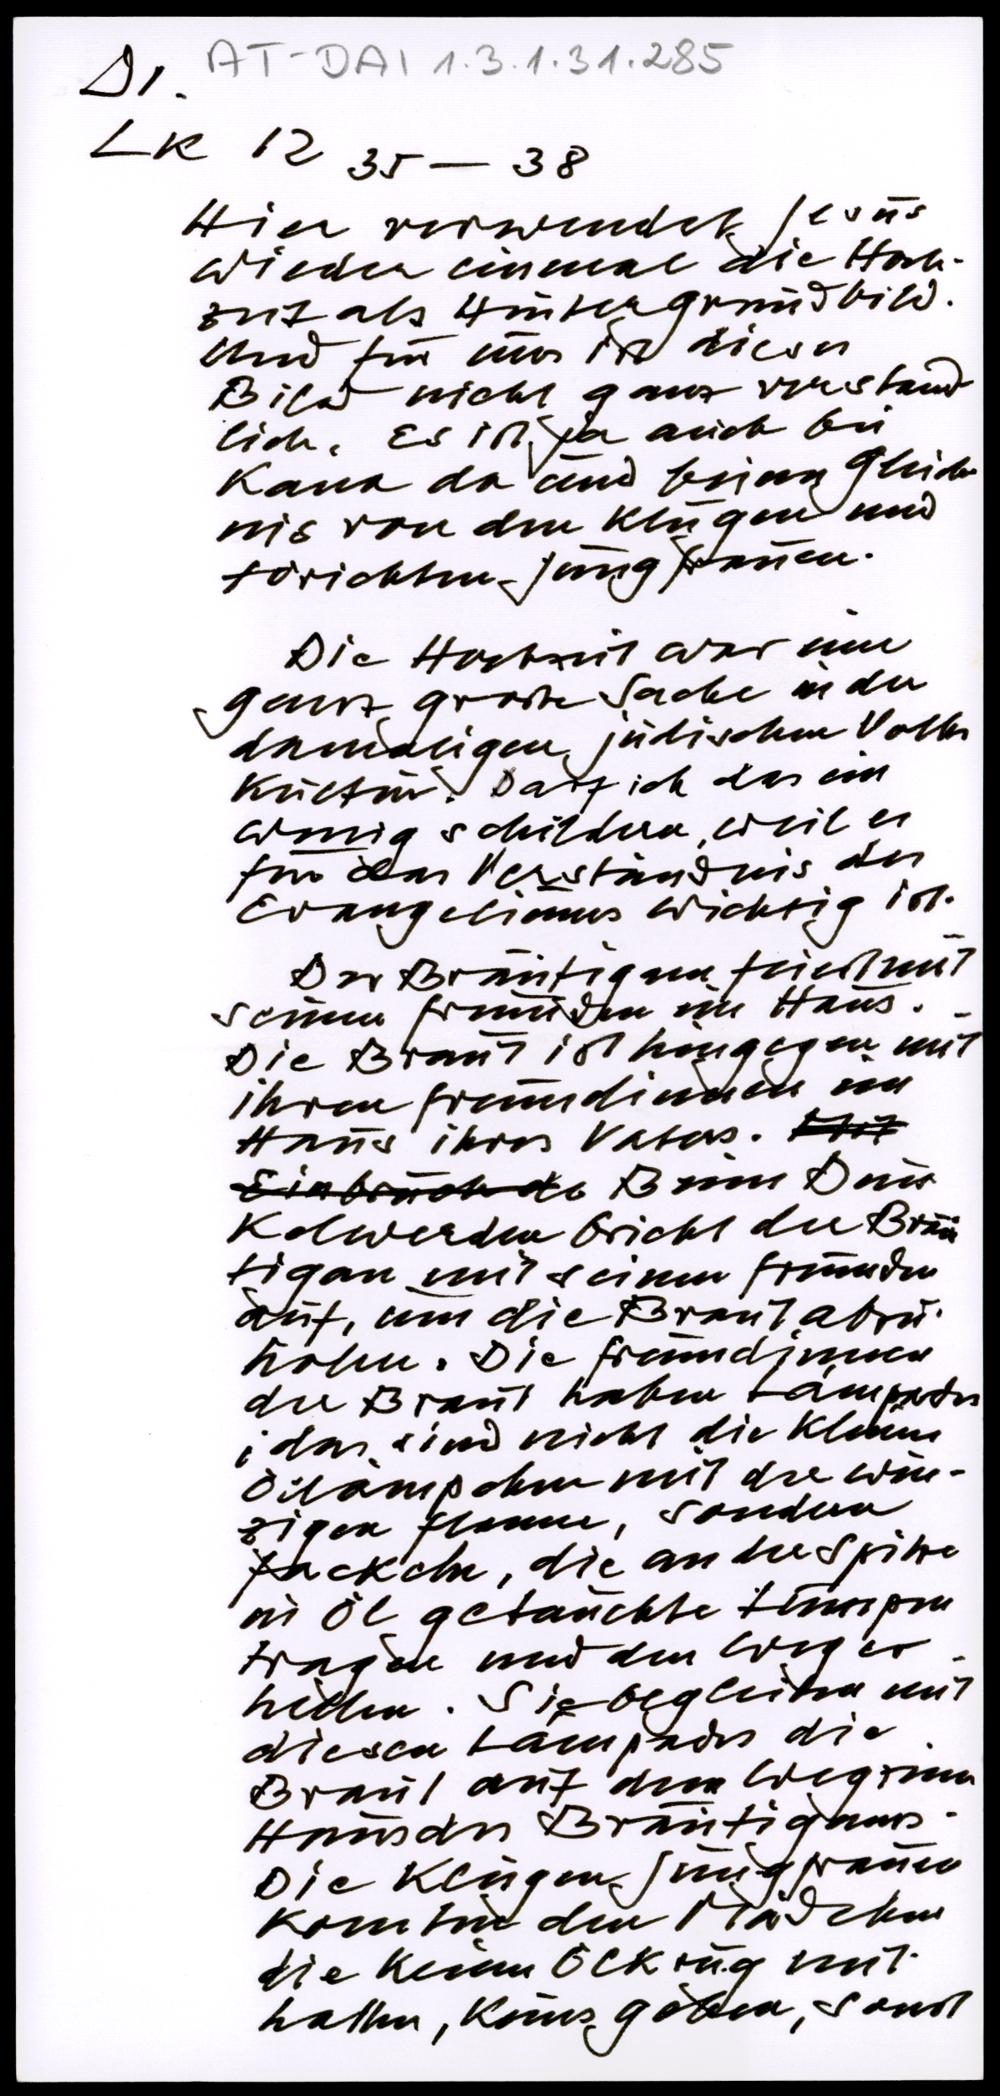 AT-DAI 1.3.1.31.285
Di.
Lk 12 35 – 38
Hier verwendet Jesus
wieder einmal die Hoch-
zeit als Hintergrundbild.
Und für uns ist dieses
Bild nicht ganz verständ
lich. Es ist ja auch bei
Kana da und beim Gleich
nis von den klugen und
törichten Jungfrauen.
Die Hochzeit war eine
ganz große Sache in der
damaligen jüdischen Volks
kultur. Darf ich das ein
wenig schildern, weil es
für das Verständnis des
Evangeliums wichtig ist.
Der Bräutigam feiert mit
seinen Freunden im Haus.
Die Braut ist hingegen mit
ihren Freundinnen im
Haus ihres Vaters. Mit
Einbruch de Beim Dun
kelwerden bricht der Bräu
tigam mit seinen Freunden
auf, um die Braut abzu-
holen. Die Freundinnen
der Braut haben Lampades
; das sind nicht die kleinen
Öllämpchen mit der win-
zigen Flamme, sondern
Fackeln, die an der Spitze
in Öl getauchte Lumpen
tragen und den Weg er
hellen. Sie begleiten mit
diesen Lampades die
Braut auf dem Weg zum
Haus des Bräutigams.
Die klugen Jungfrauen
konnten den Mädchen
die keinen Ölkrug mit
hatten, keins geben, sonst